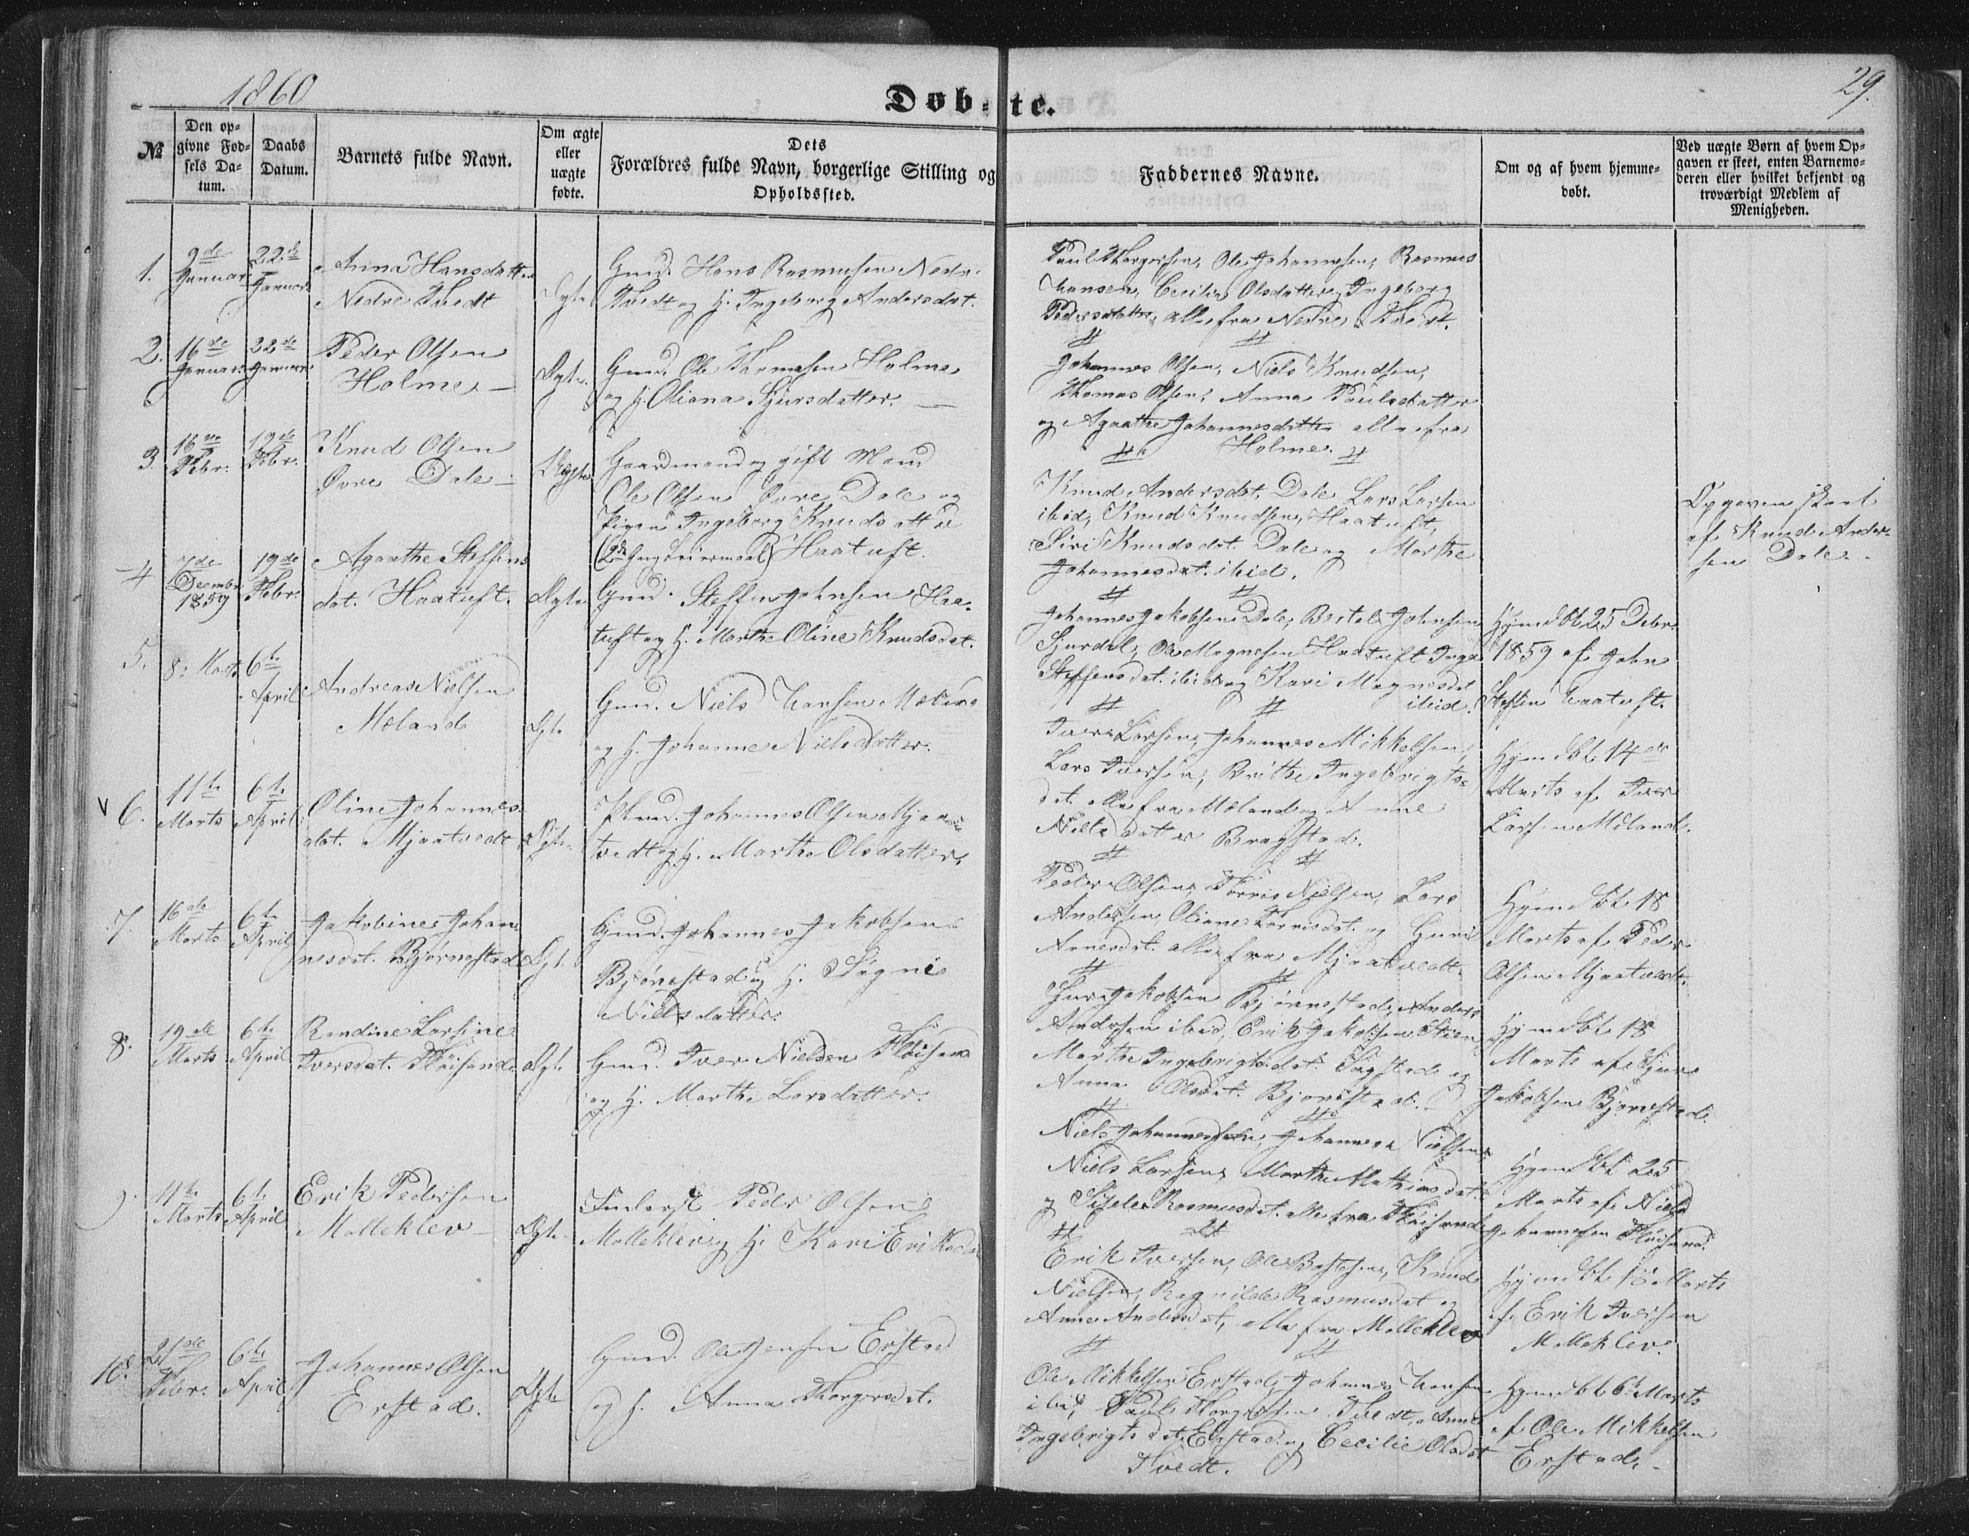 1860
Døbte.
29.
№
Den opgivne Fødsels Datum.
Daabs Datum.
Barnets fulde Navn.
Om ægte eller uægte fødte.
Dets Forældres fulde Navn, borgerlige Stilling og Opholdssted.
Faddernes Navne.
Om og af hvem hjemmedøbt.
Ved uægte Børn af hvem Opgaven er skeet, enten Barnemoderen eller hvilket bekjendt og troværdigt Medlem af Menigheden.
1.
9de Januar
22de Januar
Anna Hansdatter
Nedre Tvedt
Ægte
Gmd. Hans Rasmussen Nedre
Tvedt og H. Ingeborg Andersdat.
Paul Thorgersen, Ole Johannesen, Rasmus
Hansen, Cecilia Olsdatter, Ingeborg
Pedersdatter, alle fra Nedre Tvedt.
2.
16de Januar
22de Januar
Peder Olsen
Holme
Ægte
Gmd. Ole Thomasen Holme
og H. Oliana Sjursdatter.
Johannes Olsen, Niels Knudsen,
Thomas Olsen, Anna Paulsdatter
og Agaathe Johannesdatter alle fra
Holme.
3.
Febr.
19de Febr.
Knud Olsen
Øvre Dale
Uægte
Gaardmand og gift Mand
Ole Olsen Øvre Dale og
Pigen Ingeborg Knudsdatter
(2den Gang Leiermaal) Haatuft.
Knud Andersdat. Dale, Lars Larsen
ibid, Knud Knudsen, Haatuft,
Siri Knudsdat. Dale og Marthe
Johannesdat. ibid.
Opgaven skeet
af Knud Andersen
Dale.
4
7de Decembr 1859
19de Febr.
Agaathe Steffens
dat. Haatuft.
Ægte
Gmd. Steffen Johnsen Haa-
tuft og H. Marthe Oline Knudsdat.
Johannes Jakobsen Dale, Bertel Johnsen
Sjurdal, Ole Magnesen Haatuft, Inga
Steffensdat. ibid og Kari Magnesdat
ibid.
Hjemdbt 25 Debr.
1859 af John
Steffen Haatuft.
5.
8. Marts
6te April
Andreas Nielsen
Mæland
Ægte
Gmd. Niels Hansen Mæland
og H. Johanne Nielsdatter.
Iver Larsen, Johannes Mikkelsen,
Lars Iversen, Brithe Ingebrigts-
dat. alle fra Mæland og Anne
Nielsdatter Bragstad.
Hjemdbt. 14de
Marts af Iver
Larsen Mæland.
6.
11te Marts
6te April
Oline Johannes
dat. Mjaatvedt
Ægte
Plmd. Johannes Olsen Mjaa-
tvedt og H. Marthe Olsdatter.
Peder Olsen, Torris Nielsen, Lars
Andersen, Oliane Torrisdat. og Guri
Arnesdat. alle fra Mjaatvedt.
Hjemdbt. 18
Marts af Peder
Olsen Mjaatvedt.
7.
16de Marts
6te April
Jakobine Johan
nesdat. Bjørnestad
Ægt.
Gmd. Johannes Jakobsen
Bjørnestad og H. Søgni
Nielsdatter.
Sjur Jakobsen Bjørnestad, Anders
Andersen ibid, Erik Jakobsen
Marthe Ingebrigtsdat. og
Anna Olsdt. Bjørnstad.
Hjemdbt 18
Marts af Sjur
Jakobsen Bjørnestad.
8.
19de Marts
6te April
Randine Larsine
Iversdat. Fløisand
Ægte
Gmd. Iver Nielsen Fløisand
og H. Marthe Larsdatter.
Niels Johannessen, Johannes Nielsen
Niels Larsen, Marthe Mathiasdat.
og Rasmusdat. alle fra Fløisand
Hjemdbt 25
Marts af Niels
Johannesen Fløisand.
9.
11te Marts
6te April
Erik Pedersen
Molleklev
Ægte
Inderst Peder Olsen
Molleklev og H. Kari Eriksdat.
Erik Iversen, Ole, Knud
Nielsen, Ragnilde Rasmusdat og
Anne Andersdat, alle fra Molleklev
Hjemdbt 18 Marts
af Erik Iversen
Molleklev.
10.
21de Febr.
6te April
Johannes Olsen
Erstad.
Ægte
Gmd. Ole Jensen Erstad
og H. Anna Thorgersdat.
Ole Mikkelsen Erstad, Johannes Hansen
ibid, Paul Thorgersen Tvedt, Anna
Ingebrigtsdat. Erstad og Cecilie Olsdat
Tvedt.
Hjemdbt. 6te Marts
af Ole Mikkelsen
Erstad.